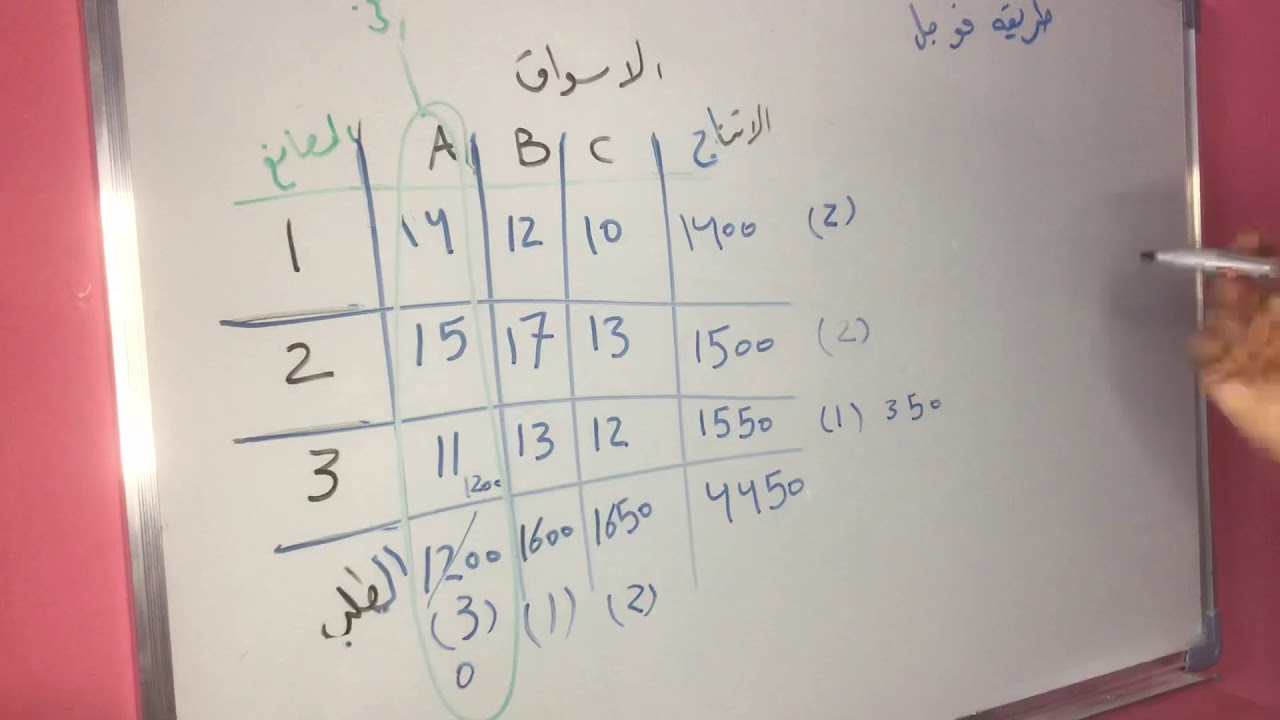 طريقة فوجل
3
الاسواق
المصانع A B C الانتاج
1 14 12 10 1400 (2)
2 15 17 13 1500 (2)
3 11 13 12 1550 (1) 350
1200
الطلب 1200 1600 1650 4450
(3) (1) (2)
0